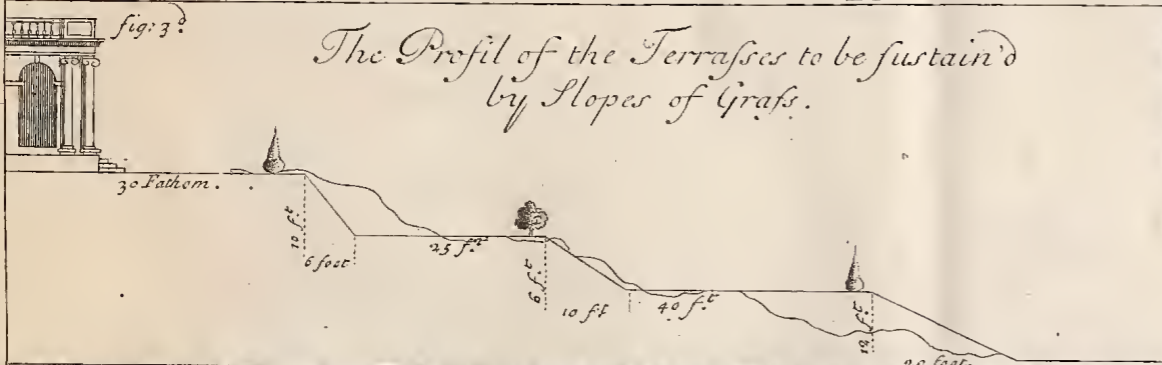 fig: 3d.
The Profil of the Terraſses to be ſustain'd
by Slopes of Graſs.
30 Fathom.
10 ft.
6 foot
25 ft.
6 ft.
10 ft
40 ft.
12 ft.
20 foot.